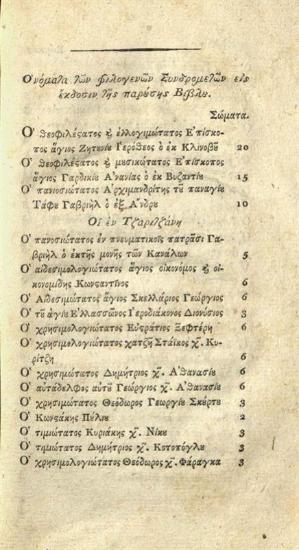 Ὀνόματα τῶν φιλογενῶν Συνδρομητῶν εἰς
ἔκδοσιν τῆς παρύσης Βίβλυ.
Σώματα.
Ὁ Θεοφιλέϛατος ȣ ἐλλογιμώτατος Ἐπίσκο-
πος ἅγιος Ζητυνίυ Γεράσιμος ὁ ἐκ Κλινοβȣ 20
Ὁ Θεοφιλέϛατος ȣ μυσικώτατος Ἐπίσκοπος
ἅγιος Γαρδικίυ Ἀνανίας ὁ ἐκ Βυζαντίυ 15
Ὁ πανοσιώτατος Ἀρχιμανδρίτης τῦ παναγίυ
Τάφυ Γαβριὴλ ὁ ἐξ Ἄνδρυ 10
Οἱ ἐν Τζαριτζάνῃ
Ὁ πανοσιώτατος ἐν πνευματικοῖς πατρᾶσι Γα-
βριὴλ ὁ ἐκτῆς μονῆς τῶν Κανάλων 5
Ὁ αἰδεσιμολογιώτατος ἅγιος οἰκονόμος ȣ οἰ-
κονομίδης Κωνϛαντῖνος 6
Ὁ Αἰδεσιμώτατος ἅγιος Σκελλάριος Γεώργιος 6
Ὁ τῦ ἁγίυ Ἐλλασσῶνος Ἱεροδιάκονος Διονύσιος 3
Ὁ χρησιμολογιώτατος Εὐϛράτιος Ξεφτέρη 6
Ὁ χρησιμολογιώτατος χατζῆ Στάϊκος χ. Κυ-
ρίτζη 6
Ὁ χρησιμώτατος Δημήτριος χ. Ἀθανασίυ 6
Ὁ αὐτάδελφος αὐτῦ Γεώργιος χ. Ἀθανασίυ 6
Ὁ χρησιμώτατος Θεόδωρος Γεωργίυ Σκύρτυ 3
Ὁ Κωνϛάκης Πύλιυ 2
Ὁ τιμιώτατος Κυριάκης χ. Νίκυ 3
Ὁ τιμιώτατος Δημήτριος χ. Κοτοπύλυ 3
Ὁ χρησιμολογιώτατος Θεόδωρος χ. Φάραγκα 3